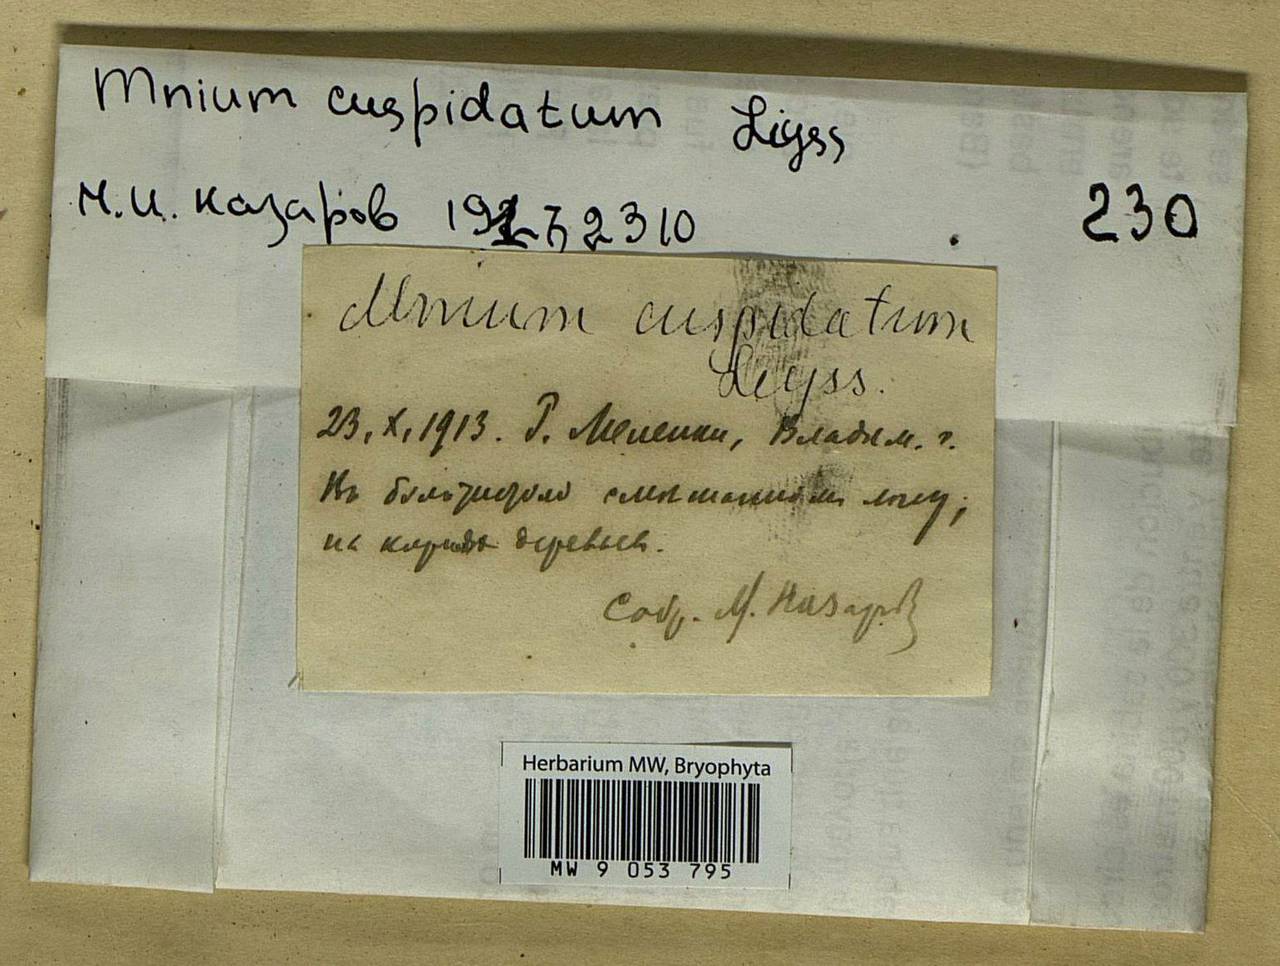 Mnium cuspidatum Liyss
Н.И. Казаров 2310
230
Mnium cuspidatum
Leyss.
23.X.1913. Г. Меленки, Владим. г.
смешанном лесу;
на деревьев.
Собр. М. Назаров
Herbarium MW, Bryophyta
MW 9 053 795